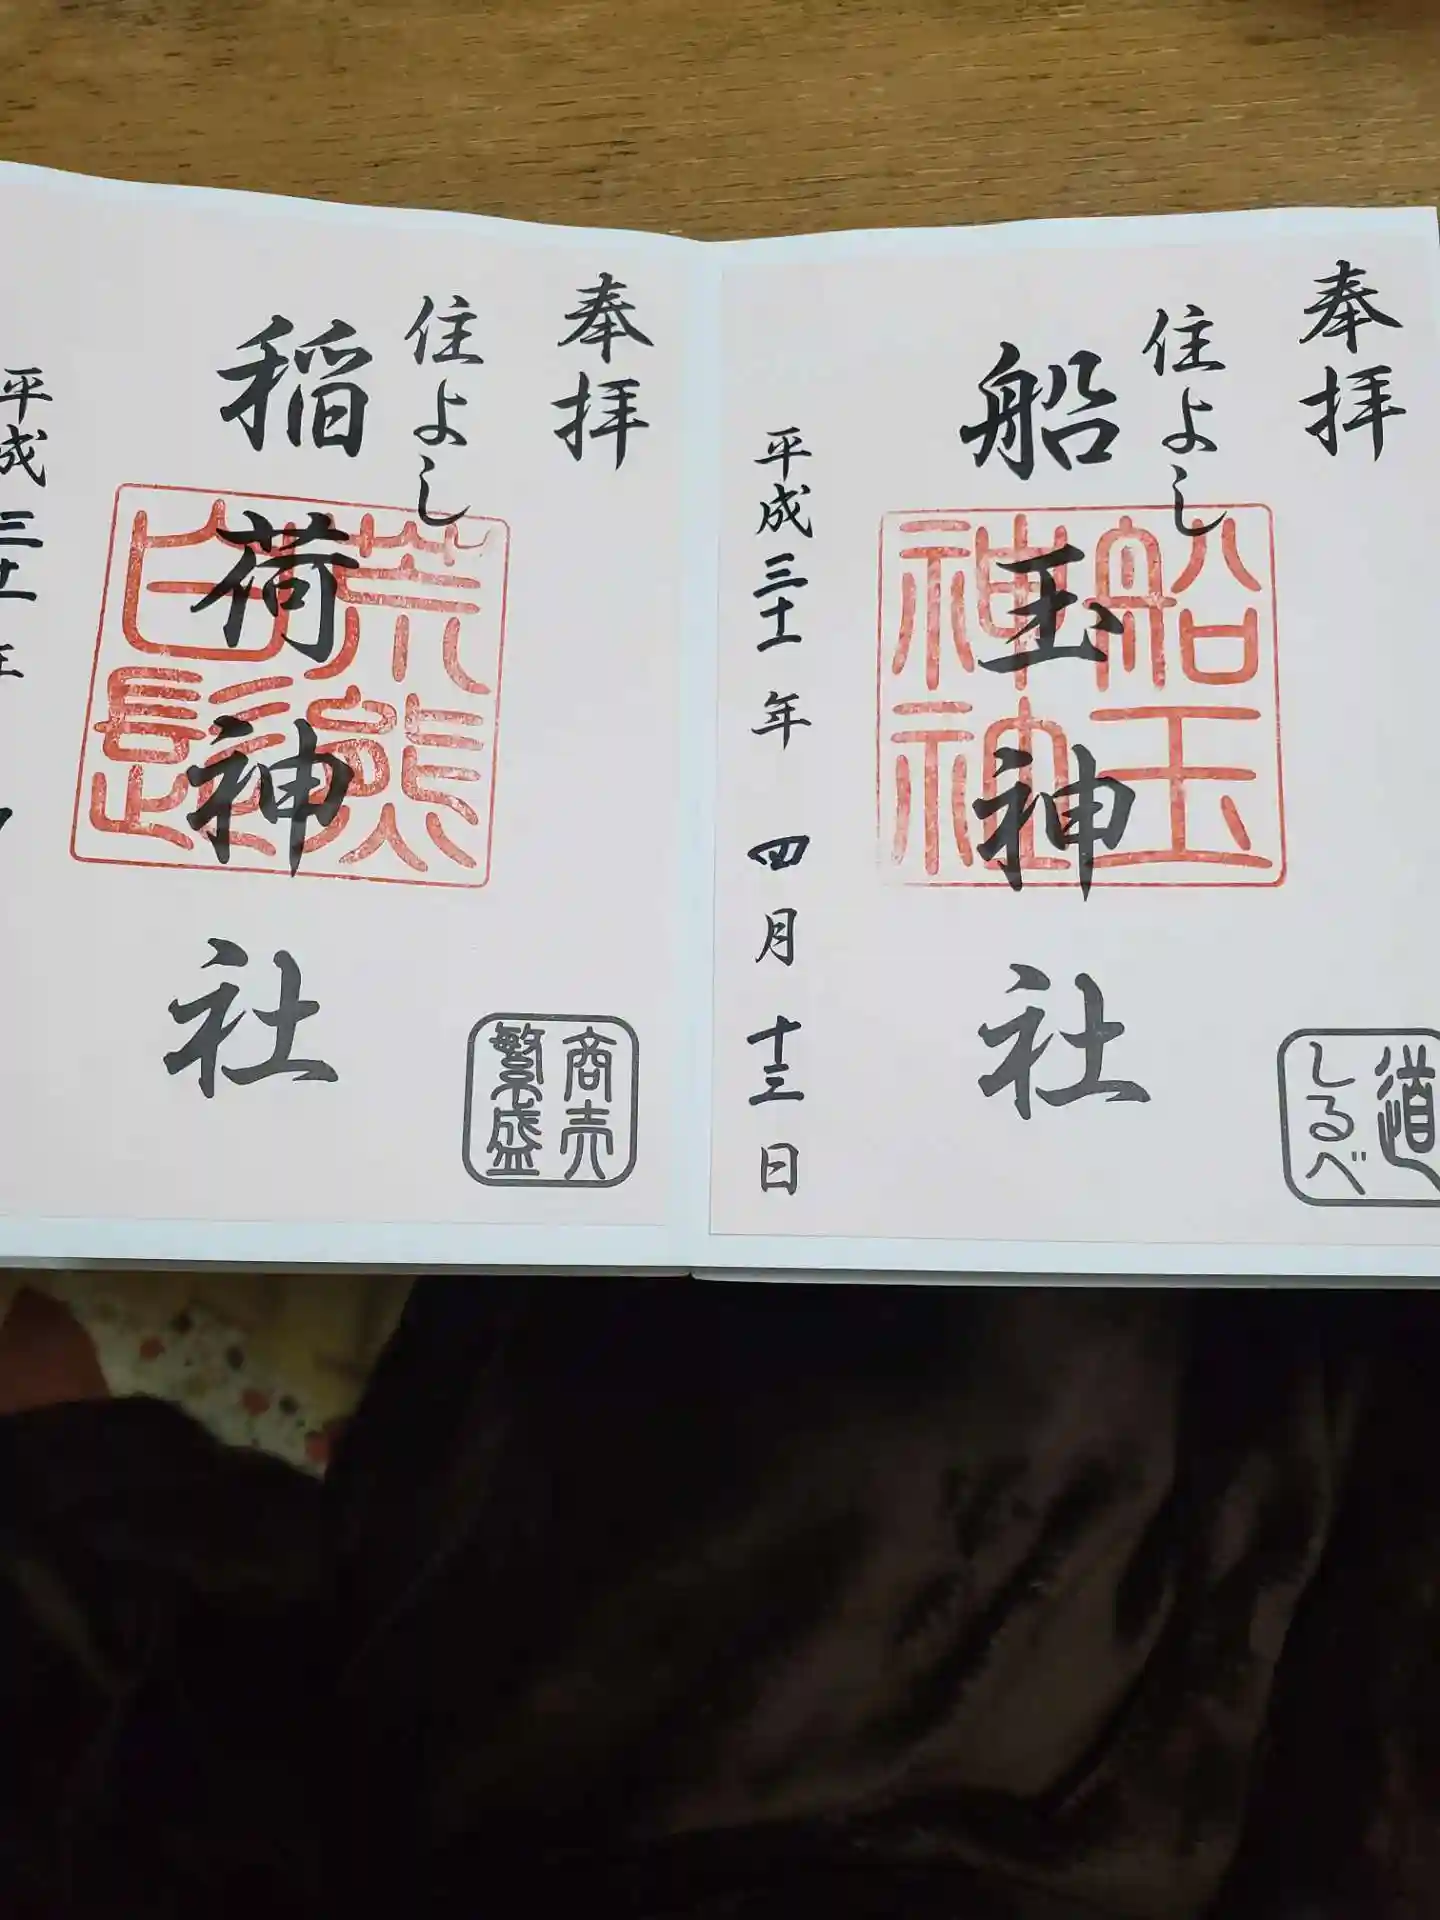 奉拝
住よし
船玉神社
船玉神神
平成三十一年四月十三日
道しるべ
奉拝
住よし
稲荷神社
荒熊白髭
商売繁盛
平成三十一年